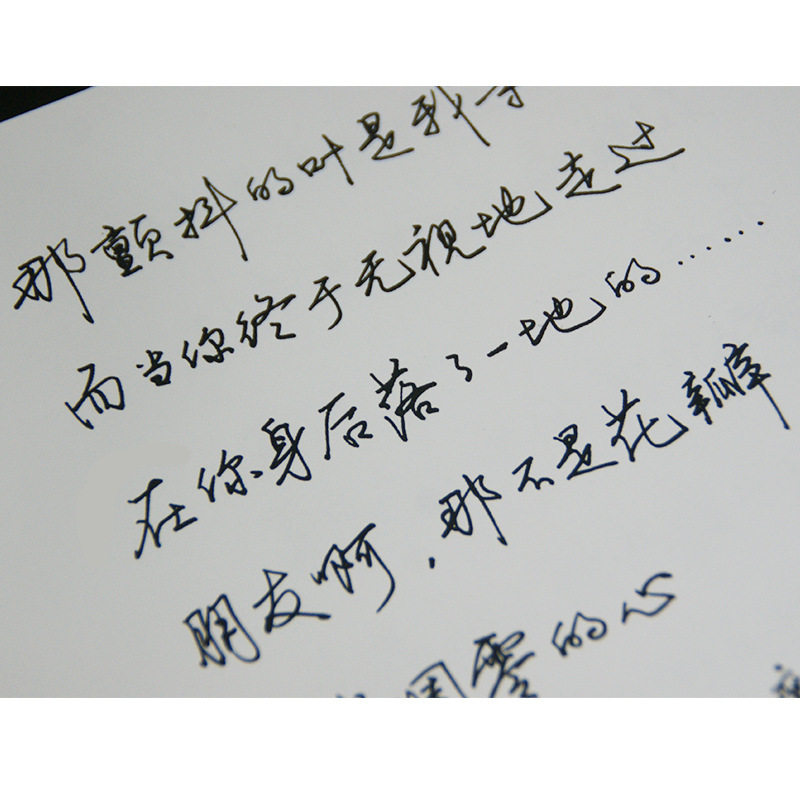 那颤抖的叶是我等
而当你终于无视地走过
在你身后落了一地的……
朋友啊,那不是花瓣
凋零的心